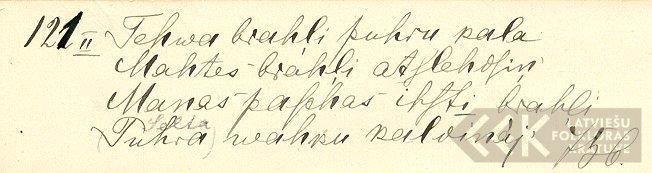 121 II Tehwa brahli puhru kala
Mahtes-brahli atslehdsin'
Manas-paschas ihsti brahli
Selta
(Puhra) wahku kaldinaj'
LATVIEŠU
FOLKLORAS
KRĀTUVE